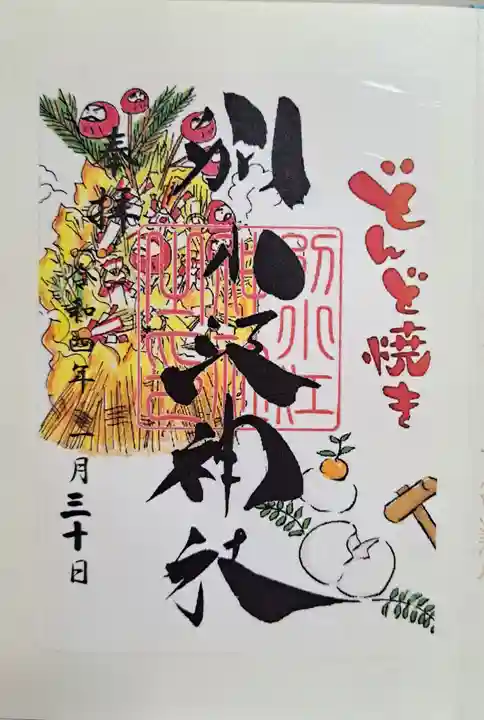 どんど焼き
別小江神社
別小江
奉拝
令和四年一月三十日